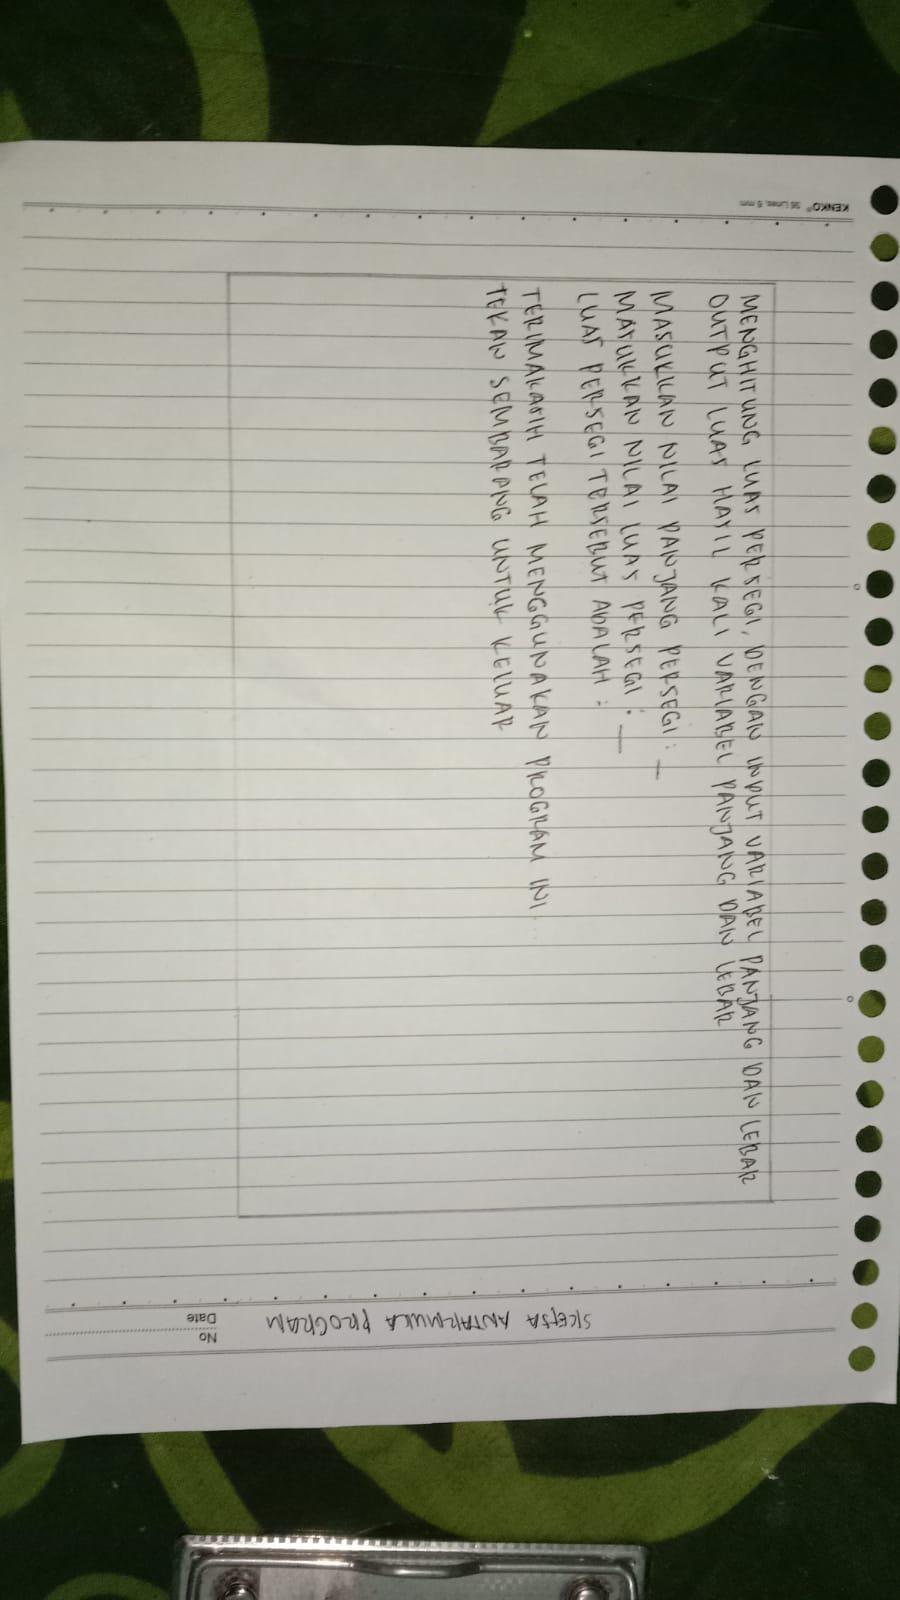 SKETSA ANTARMUKA PROGRAM
No
Date
MENGHITUNG LUAS PERSEGI, DENGAN INPUT VARIABEL PANJANG DAN LEBAR
OUTPUT LUAS HASIL KALI VARIABEL PANJANG DAN LEBAR
MASUKKAN NILAI PANJANG PERSEGI : _
MASUKKAN NILAI LUAS PERSEGI : _
LUAS PERSEGI TERSEBUT ADALAH :
TERIMAKASIH TELAH MENGGUNAKAN PROGRAM INI
TEKAN SEMBARANG UNTUK KELUAR
KENKO® 56 Lines, 6 mm